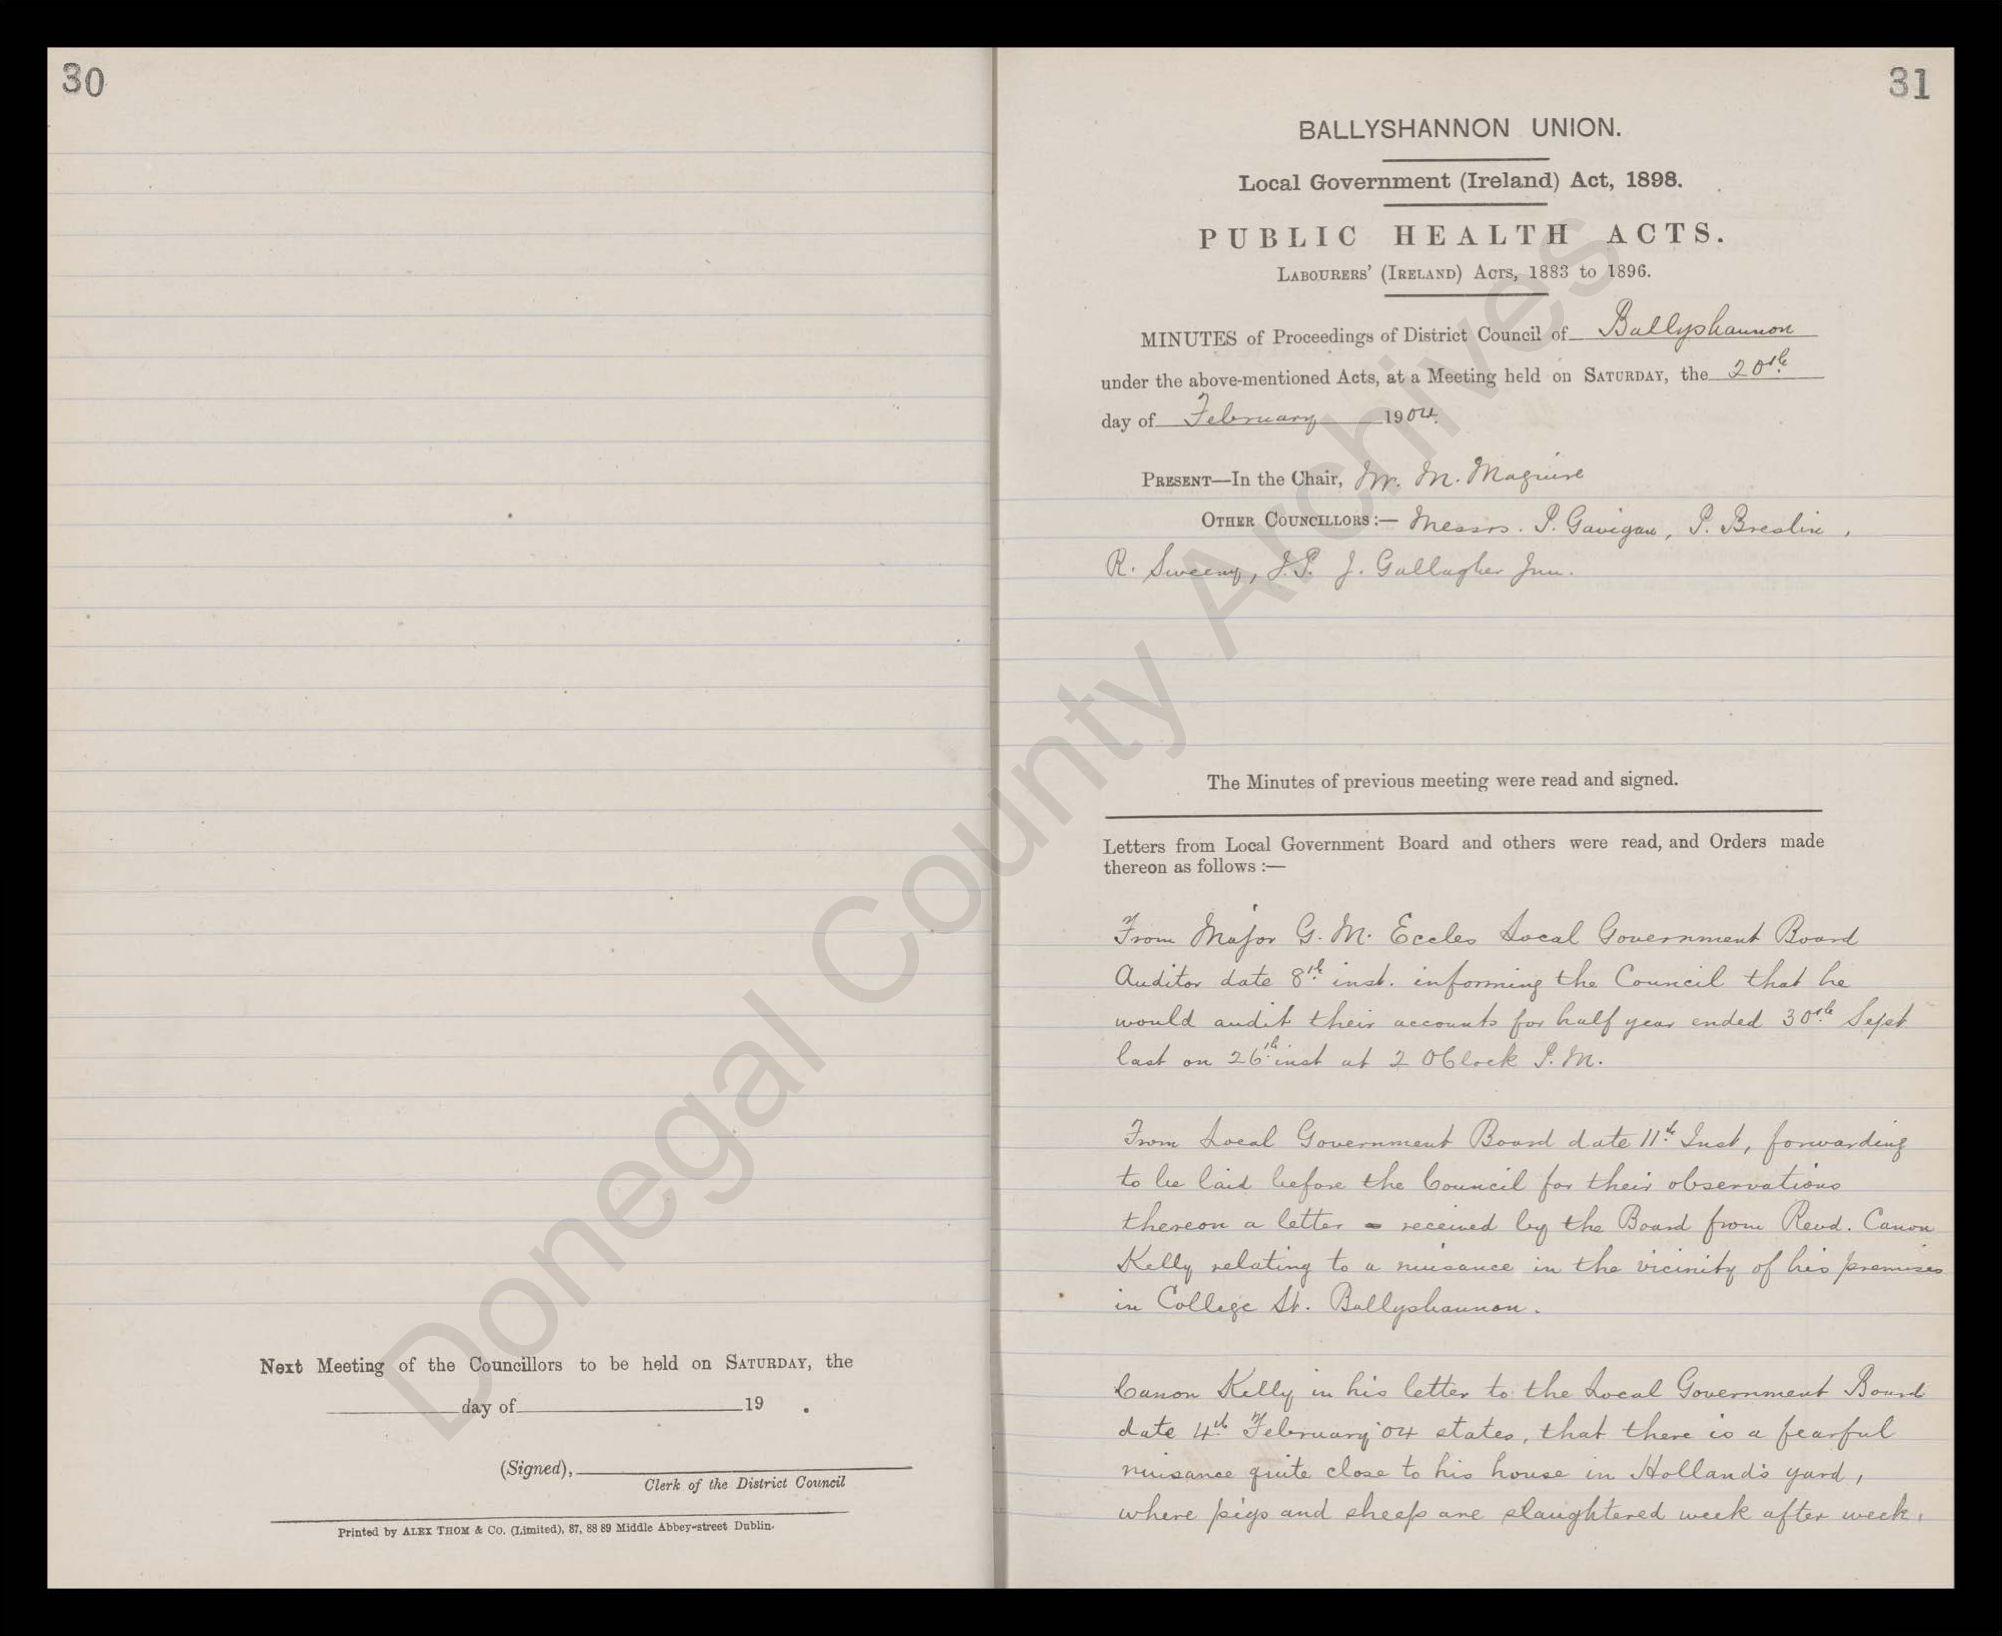 30
Next Meeting of the Councillors to be held on SATURDAY, the
day of 19 .
(Signed),
Clerk of the District Council
Printed by ALEX THOM & CO. (Limited), 87, 88 89 Middle Abbey-street Dublin.
31
BALLYSHANNON UNION.
Local Government (Ireland) Act, 1898.
PUBLIC HEALTH ACTS.
LABOURERS' (IRELAND) ACTS, 1883 to 1896.
MINUTES of Proceedings of District Council of Ballyshannon
under the above-mentioned Acts, at a Meeting held on SATURDAY, the 20th
day of February 1904.
PRESENT—In the Chair, Mr. M. Maguire
OTHER COUNCILLORS :— Messrs. P. Gavigan, P. Breslin,
R. Sweeny, J.P. J. Gallagher Jun.
The Minutes of previous meeting were read and signed.
Letters from Local Government Board and others were read, and Orders made
thereon as follows :—
From Major G. M. Eccles Local Government Board
Auditor date 8th inst. informing the Council that he
would audit their accounts for half year ended 30th Sept
last on 26th inst at 2 OClock P.M.
From Local Government Board date 11th Inst, forwarding
to be laid before the Council for their observations
thereon a letter received by the Board from Revd. Canon
Kelly relating to a nuisance in the vicinity of his premises
in College St. Ballyshannon.
Canon Kelly in his letter to the Local Government Board
date 4th February '04 states, that there is a fearful
nuisance quite close to his house in Holland's yard,
where pigs and sheep are slaughtered week after week,
Donegal County Archives